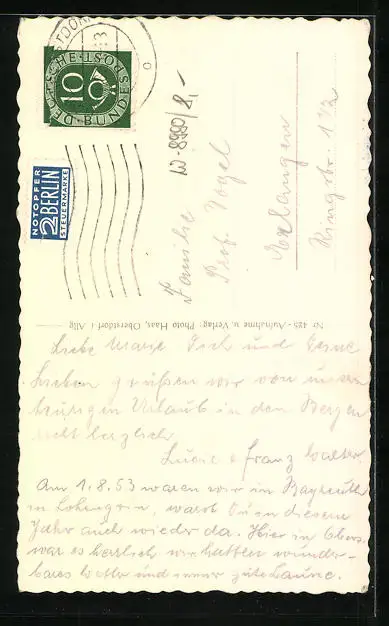 DEUTSCHE·POST·BUNDESPOST
10
NOTOPFER
2 BERLIN
STEUERMARKE
W-8990/8,-
Familie
Prof. Vogel
Erlangen
Ringstr.
Nr. 425 - Aufnahme u. Verlag: Photo Haas, Oberstdorf i. Allg
Liebe Marie Dich und Deine
Lieben grüßen wir von unserem
Urlaub in den Bergen
recht herzlich
Lucie & Franz Walter.
Am 1.8.53 waren wir in Bayreuth
in Lohengrin, warst Du in diesem
Jahr auch wieder da. Hier in Oberst.
war es herrlich wir hatten wunder-
bares Wetter und immer gute Laune.